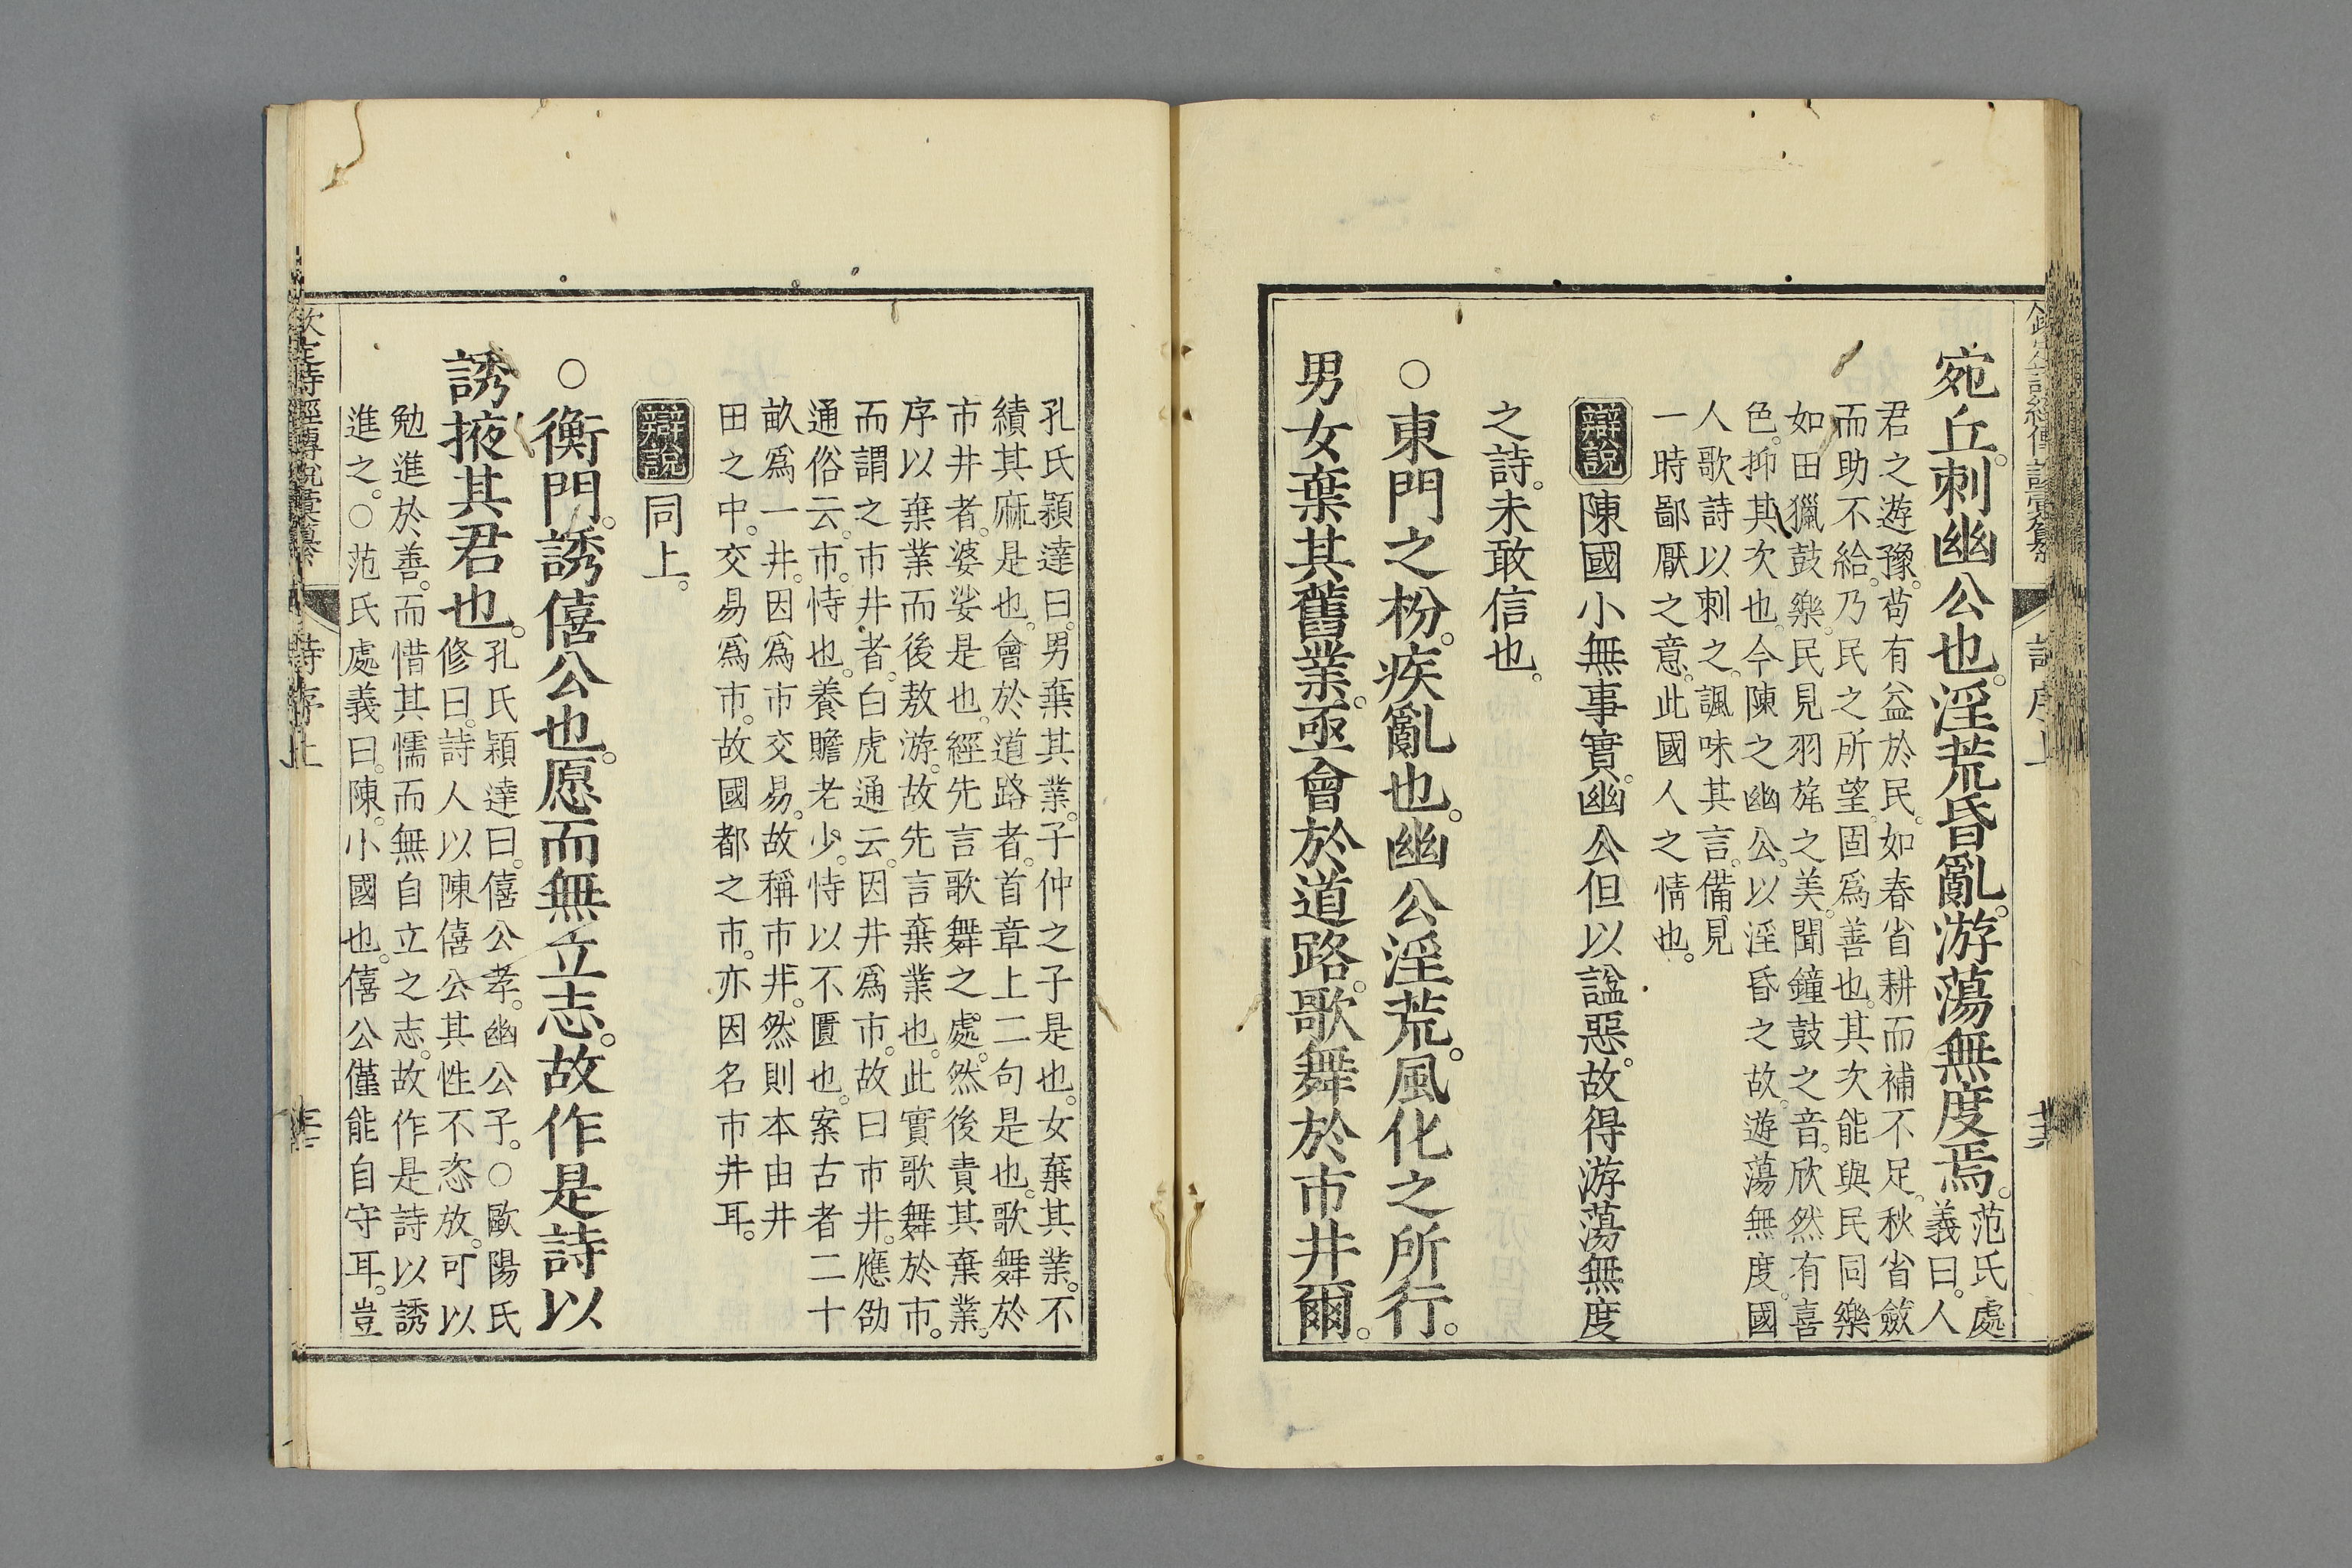 宛丘。刺幽公也。淫荒昏亂。游蕩無度焉。范氏處
義曰。人
君之遊豫。苟有益於民。如春省耕而補不足。秋省斂
而助不給。乃民之所望。固爲善也。其次能與民同樂
如田獵鼓樂。民見羽旄之美。聞鐘鼓之音。欣然有喜
色。抑其次也。今陳之幽公。以淫昏之故。遊蕩無度。國
人歌詩以刺之。諷味其言。備見
一時鄙厭之意。此國人之情也。
辯說 陳國小無事實。幽公但以諡惡。故得游蕩無度
之詩。未敢信也。
○東門之枌。疾亂也。幽公淫荒。風化之所行。
男女棄其舊業。亟會於道路。歌舞於市井爾。
孔氏穎達曰。男棄其業。子仲之子是也。女棄其業。不
績其麻是也。會於道路者。首章上二句是也。歌舞於
市井者。婆娑是也。經先言歌舞之處。然後責其棄業。
序以棄業而後敖游。故先言棄業也。此實歌舞於市。
而謂之市井者。白虎通云。因井爲市。故曰市井。應劭
通俗云。市。恃也。養贍老少。恃以不匱也。案古者二十
畝爲一井。因爲市交易。故稱市井。然則本由井
田之中。交易爲市。故國都之市。亦因名市井耳。
辯說 同上。
○衡門。誘僖公也。愿而無立志。故作是詩以
誘掖其君也。孔氏穎達曰。僖公孝。幽公子。○歐陽氏
修曰。詩人以陳僖公其性不恣放。可以
勉進於善。而惜其懦而無自立之志。故作是詩以誘
進之。○范氏處義曰。陳。小國也。僖公僅能自守耳。豈
欽定詩經傳說彙纂 詩序上